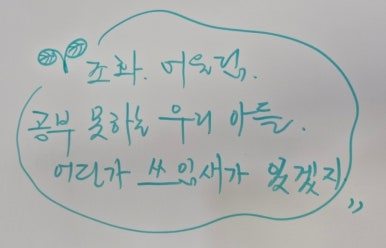 조화. 어울림.
공부 못하는 우리 아들.
어딘가 쓰임새가 있겠지
,,